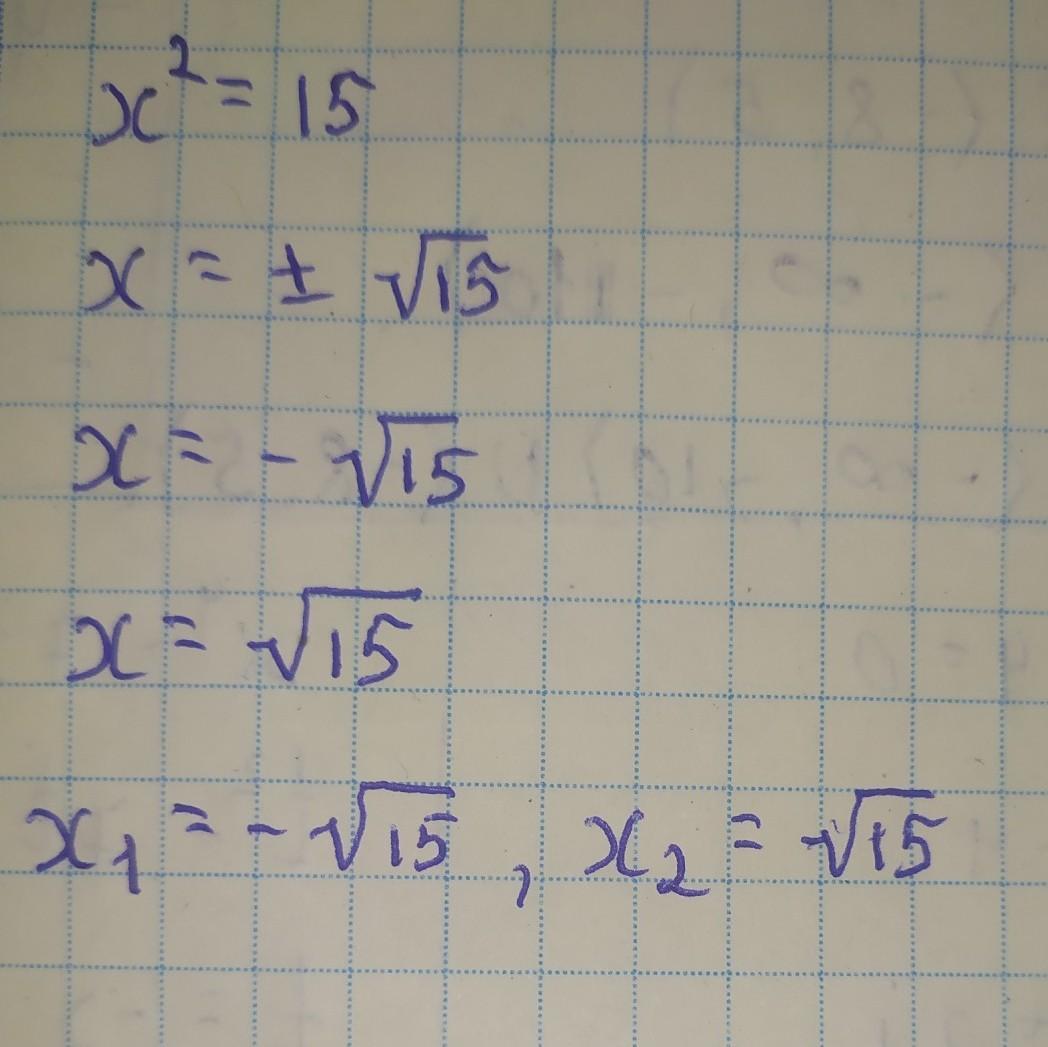 x² = 15
x = ± √15
x = - √15
x = √15
x₁ = - √15 , x₂ = √15